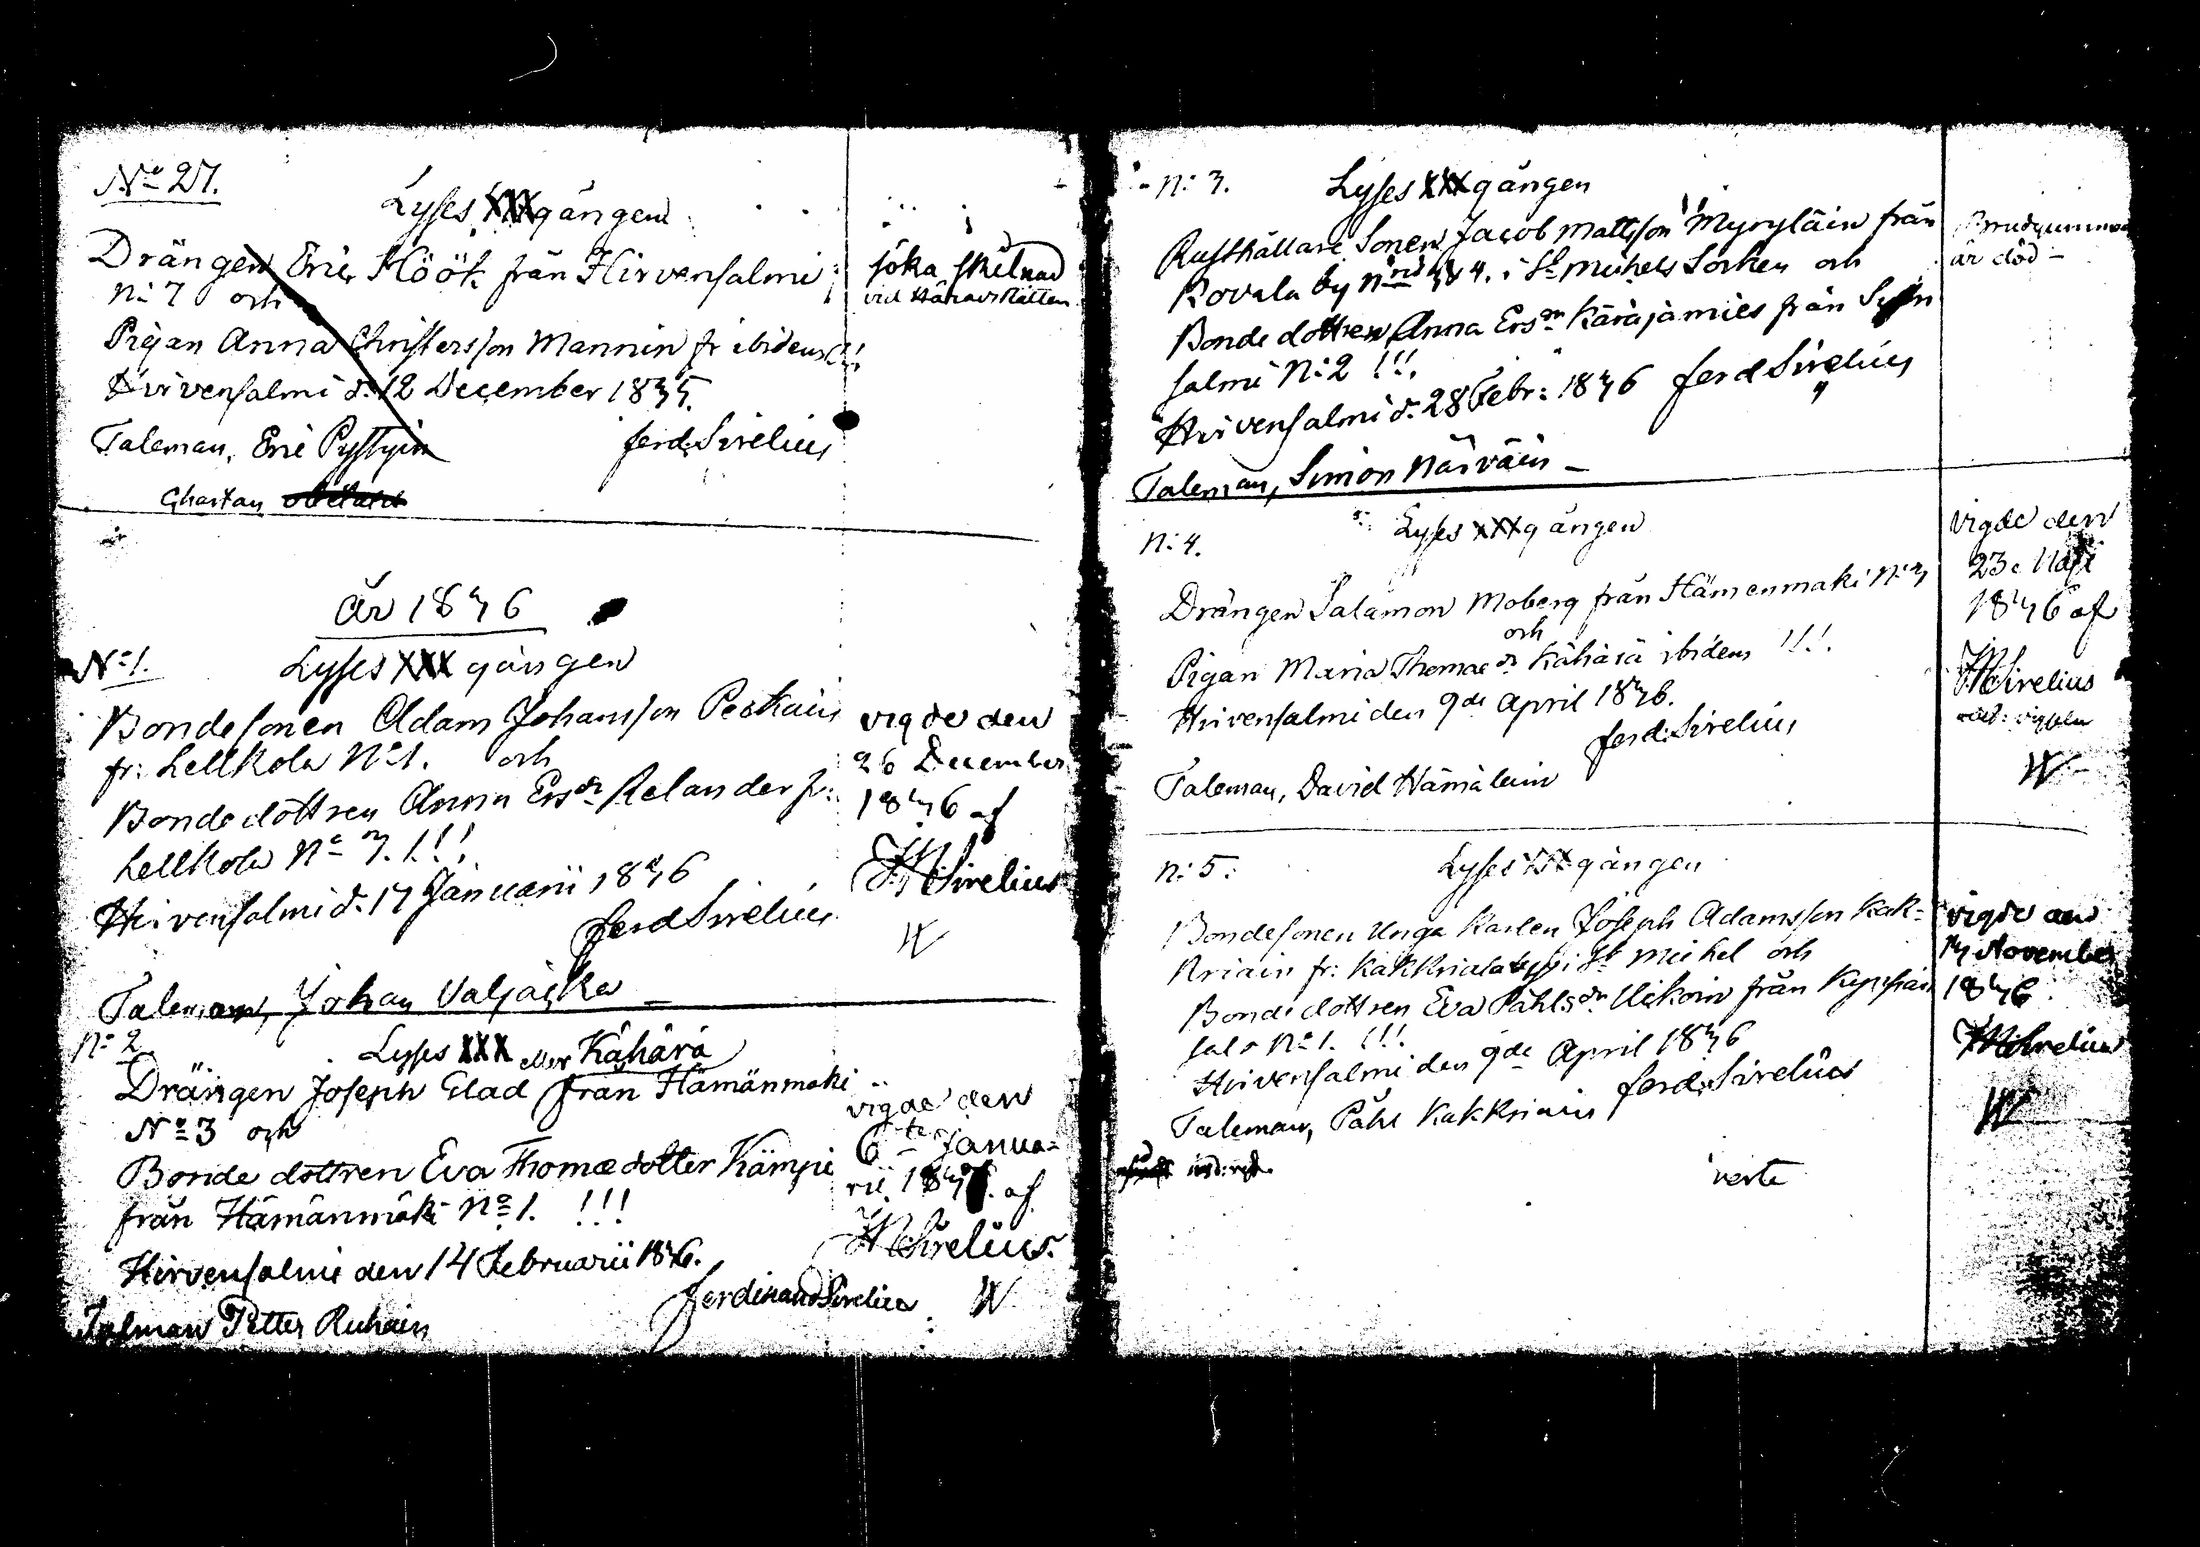 No 27.
Lyses XXX gången
Drängen Eric Höök från Hirvensalmi
N:7 och
Pigan Anna Christersson Mannin fr ibidem !!!
Hirvensalmi d. 12 December 1835.
Taleman, Eric Pystyin
ferd: Sirelius
söka skilnad
vid Häradsrätten
År 1836
No 1.
Lyses XXX gången
Bondesonen Adam Johansson Peskain
fr: Lellkola No 1. och
Bonde dottren Anna Ersdr Relander fr:
Lellkola No 3. !!!
Hirvensalmi d. 17 Januarii 1836
ferd Sirelius
Taleman, Johan Valjacka
vigde den
26 December
1836 af
Sirelius
No 2
Lyses XXX eller Kähärä
Drängen Joseph Glad från Hämänmäki
No 3 och
Bonde dottren Eva Thomædotter Kämpi
från Hämänmäki No 1. !!!
Hirvensalmi den 14 Februarii 1836.
Ferdinand Sirelius
Talman Petter Ruhain
vigde den
6te Janua-
rii 183 af
Sirelius.
N: 3.
Lyses XXX gången
Rusthållare Sonen Jacob Mattsson Myryläin från
Rovala by 4. i St Michels Socken och
Bonde dottren Anna Ersdr Käräjämies från Syn
salmi N:2 !!!
Hirvensalmi d. 28 Febr: 1836 ferd Sirelius
Taleman, Simon Närväin
Brudgummen
är död
N: 4.
Lyses XXX gången
Drängen Salamon Moberg från Hämenmäki N:3
och
Pigan Maria Thomædr Kähärä ibidem !!!
Hirvensalmi den 9de April 1836.
ferd: Sirelius
Taleman, David Hämäläin
vigde den
23e Maji
1836 af
Sirelius
N: 5.
Lyses XXX gången
Bondesonen Unga Karlen Joseph Adamsson Kak-
kriain fr: Kakkriala by i St Michel och
Bonde dottren Eva Påhlsdr Ukkoin från Kypsiäis
salo No 1. !!!
Hirvensalmi den 9de April 1836
ferd: Sirelius
Taleman, Påhl Kakkriain
verte
vigde den
November
1836
Sirelius